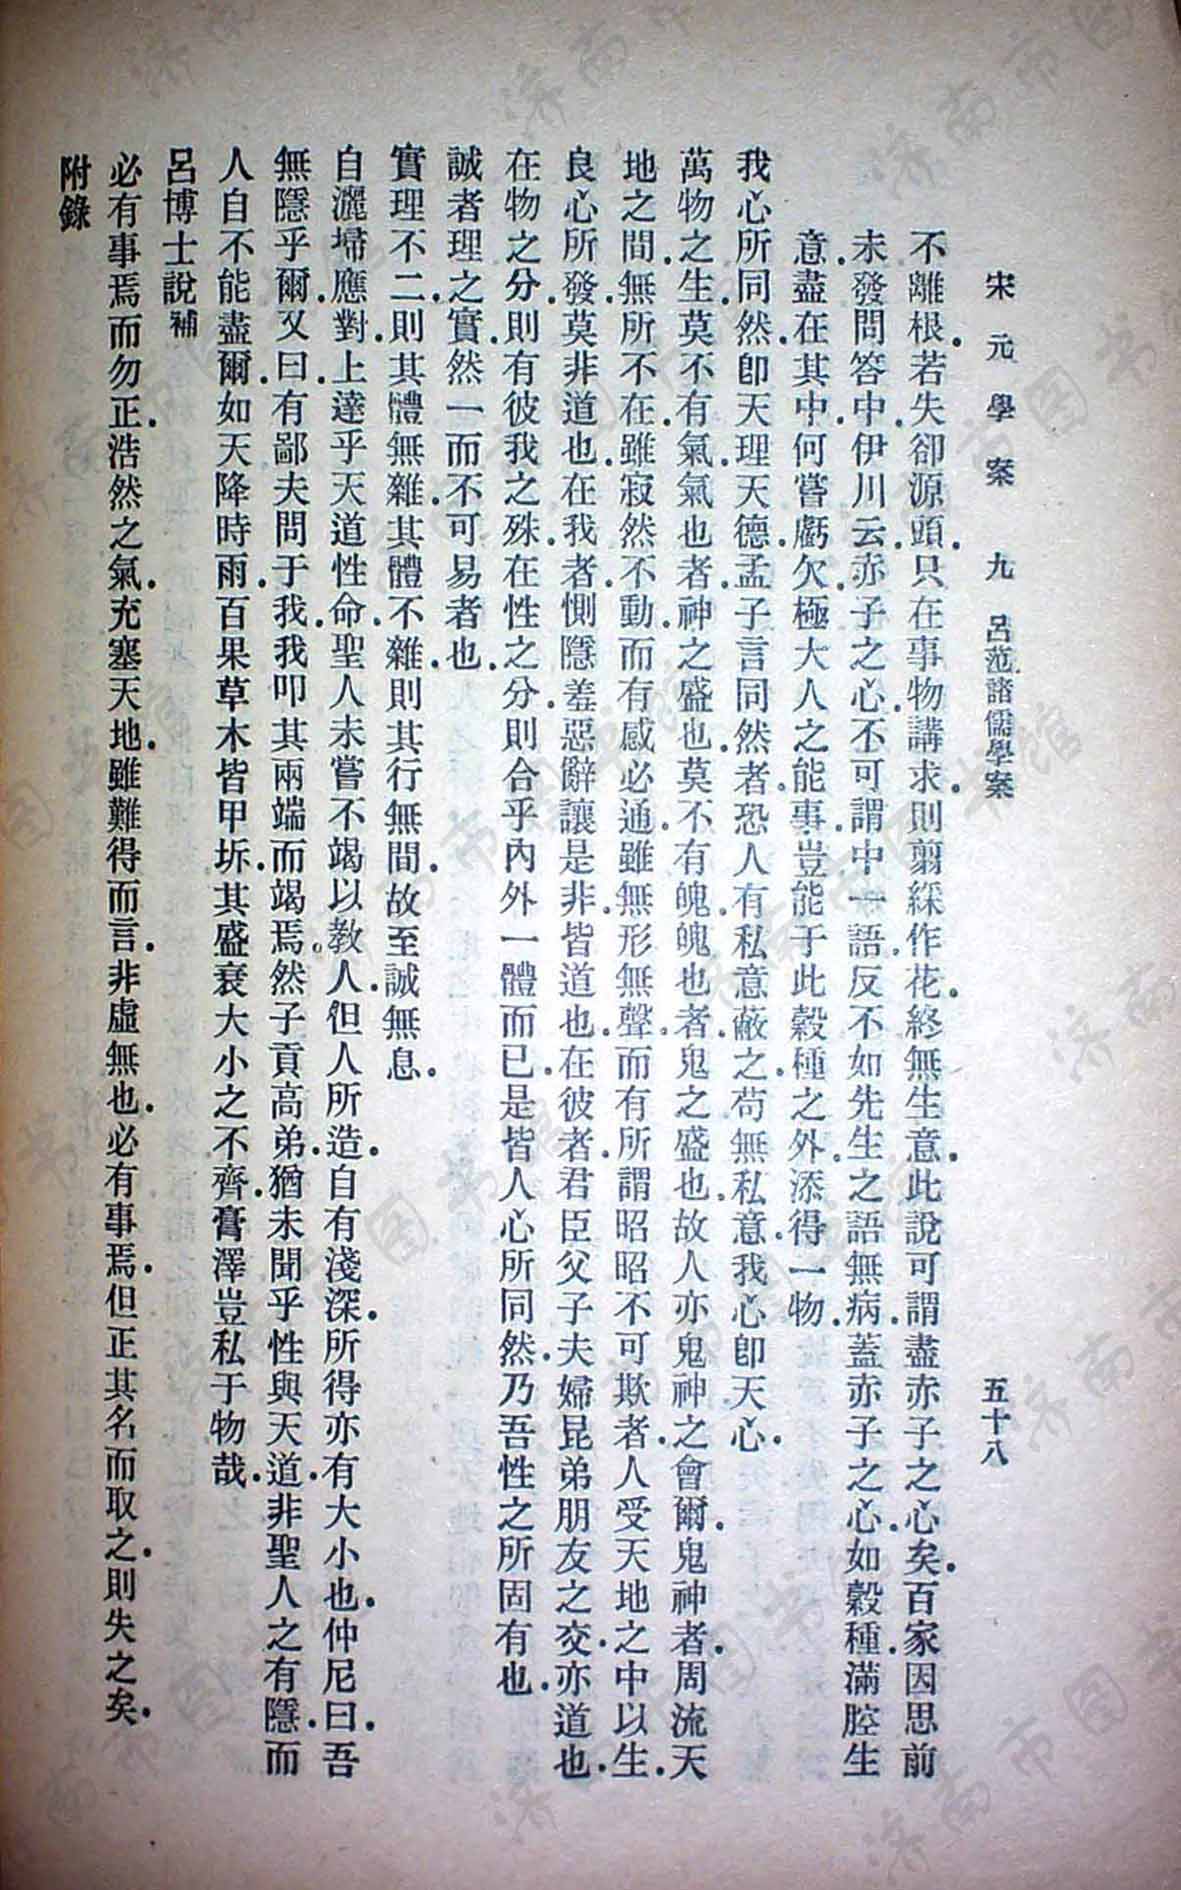 宋元學案 九 呂范諸儒學案 五十八
不離根.若失卻源頭.只在事物講求.則翦綵作花.終無生意.此說可謂盡赤子之心矣.百家因思前
未發問答中.伊川云.赤子之心.不可謂中一語.反不如先生之語無病.蓋赤子之心.如穀種.滿腔生
意盡在其中.何嘗虧欠.極大人之能事.豈能于此穀種之外.添得一物.
我心所同然.卽天理天德.孟子言同然者.恐人有私意蔽之.苟無私意.我心卽天心.
萬物之生.莫不有氣.氣也者.神之盛也.莫不有魄.魄也者.鬼之盛也.故人亦鬼神之會爾.鬼神者.周流天
地之間.無所不在.雖寂然不動.而有感必通.雖無形無聲.而有所謂昭昭不可欺者.人受天地之中以生.
良心所發.莫非道也.在我者.惻隱.羞惡.辭讓.是非.皆道也.在彼者.君臣父子夫婦昆弟朋友之交.亦道也.
在物之分.則有彼我之殊.在性之分.則合乎內外一體而已.是皆人心所同然.乃吾性之所固有也.
誠者.理之實然.一而不可易者也.
實理不二.則其體無雜.其體不雜.則其行無間.故至誠無息.
自灑埽應對.上達乎天道性命.聖人未嘗不竭以教人.但人所造.自有淺深.所得亦有大小也.仲尼曰.吾
無隱乎爾.又曰.有鄙夫問于我.我叩其兩端而竭焉.然子貢高弟.猶未聞乎性與天道.非聖人之有隱.而
人自不能盡爾.如天降時雨.百果草木皆甲坼.其盛衰大小之不齊.膏澤豈私于物哉.
呂博士說補
必有事焉而勿正.浩然之氣.充塞天地.雖難得而言.非虛無也.必有事焉.但正其名而取之.則失之矣.
附錄